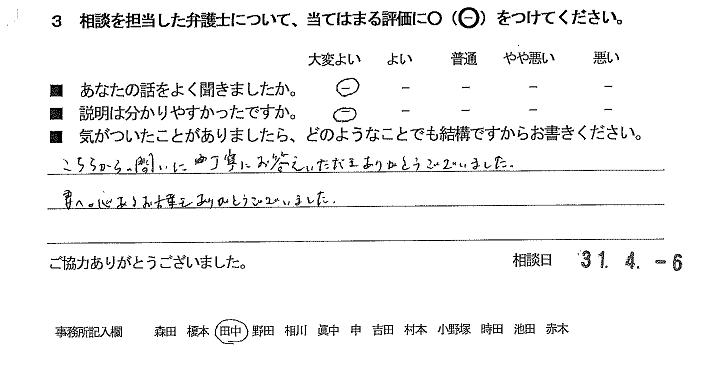 3 相談を担当した弁護士について、当てはまる評価に○（㊀）をつけてください。
大変よい よい 普通 やや悪い 悪い
■ あなたの話をよく聞きましたか。 － － － － －
■ 説明は分かりやすかったですか。 － － － － －
■ 気がついたことがありましたら、どのようなことでも結構ですからお書きください。
こちらからの問いに 丁寧にお答えいただきありがとうございました。
心あるお言葉をありがとうございました。
ご協力ありがとうございました。 相談日 31. 4. -6
事務所記入欄 森田 榎本 田中 野田 相川 眞中 申 吉田 村本 小野塚 時田 池田 赤木